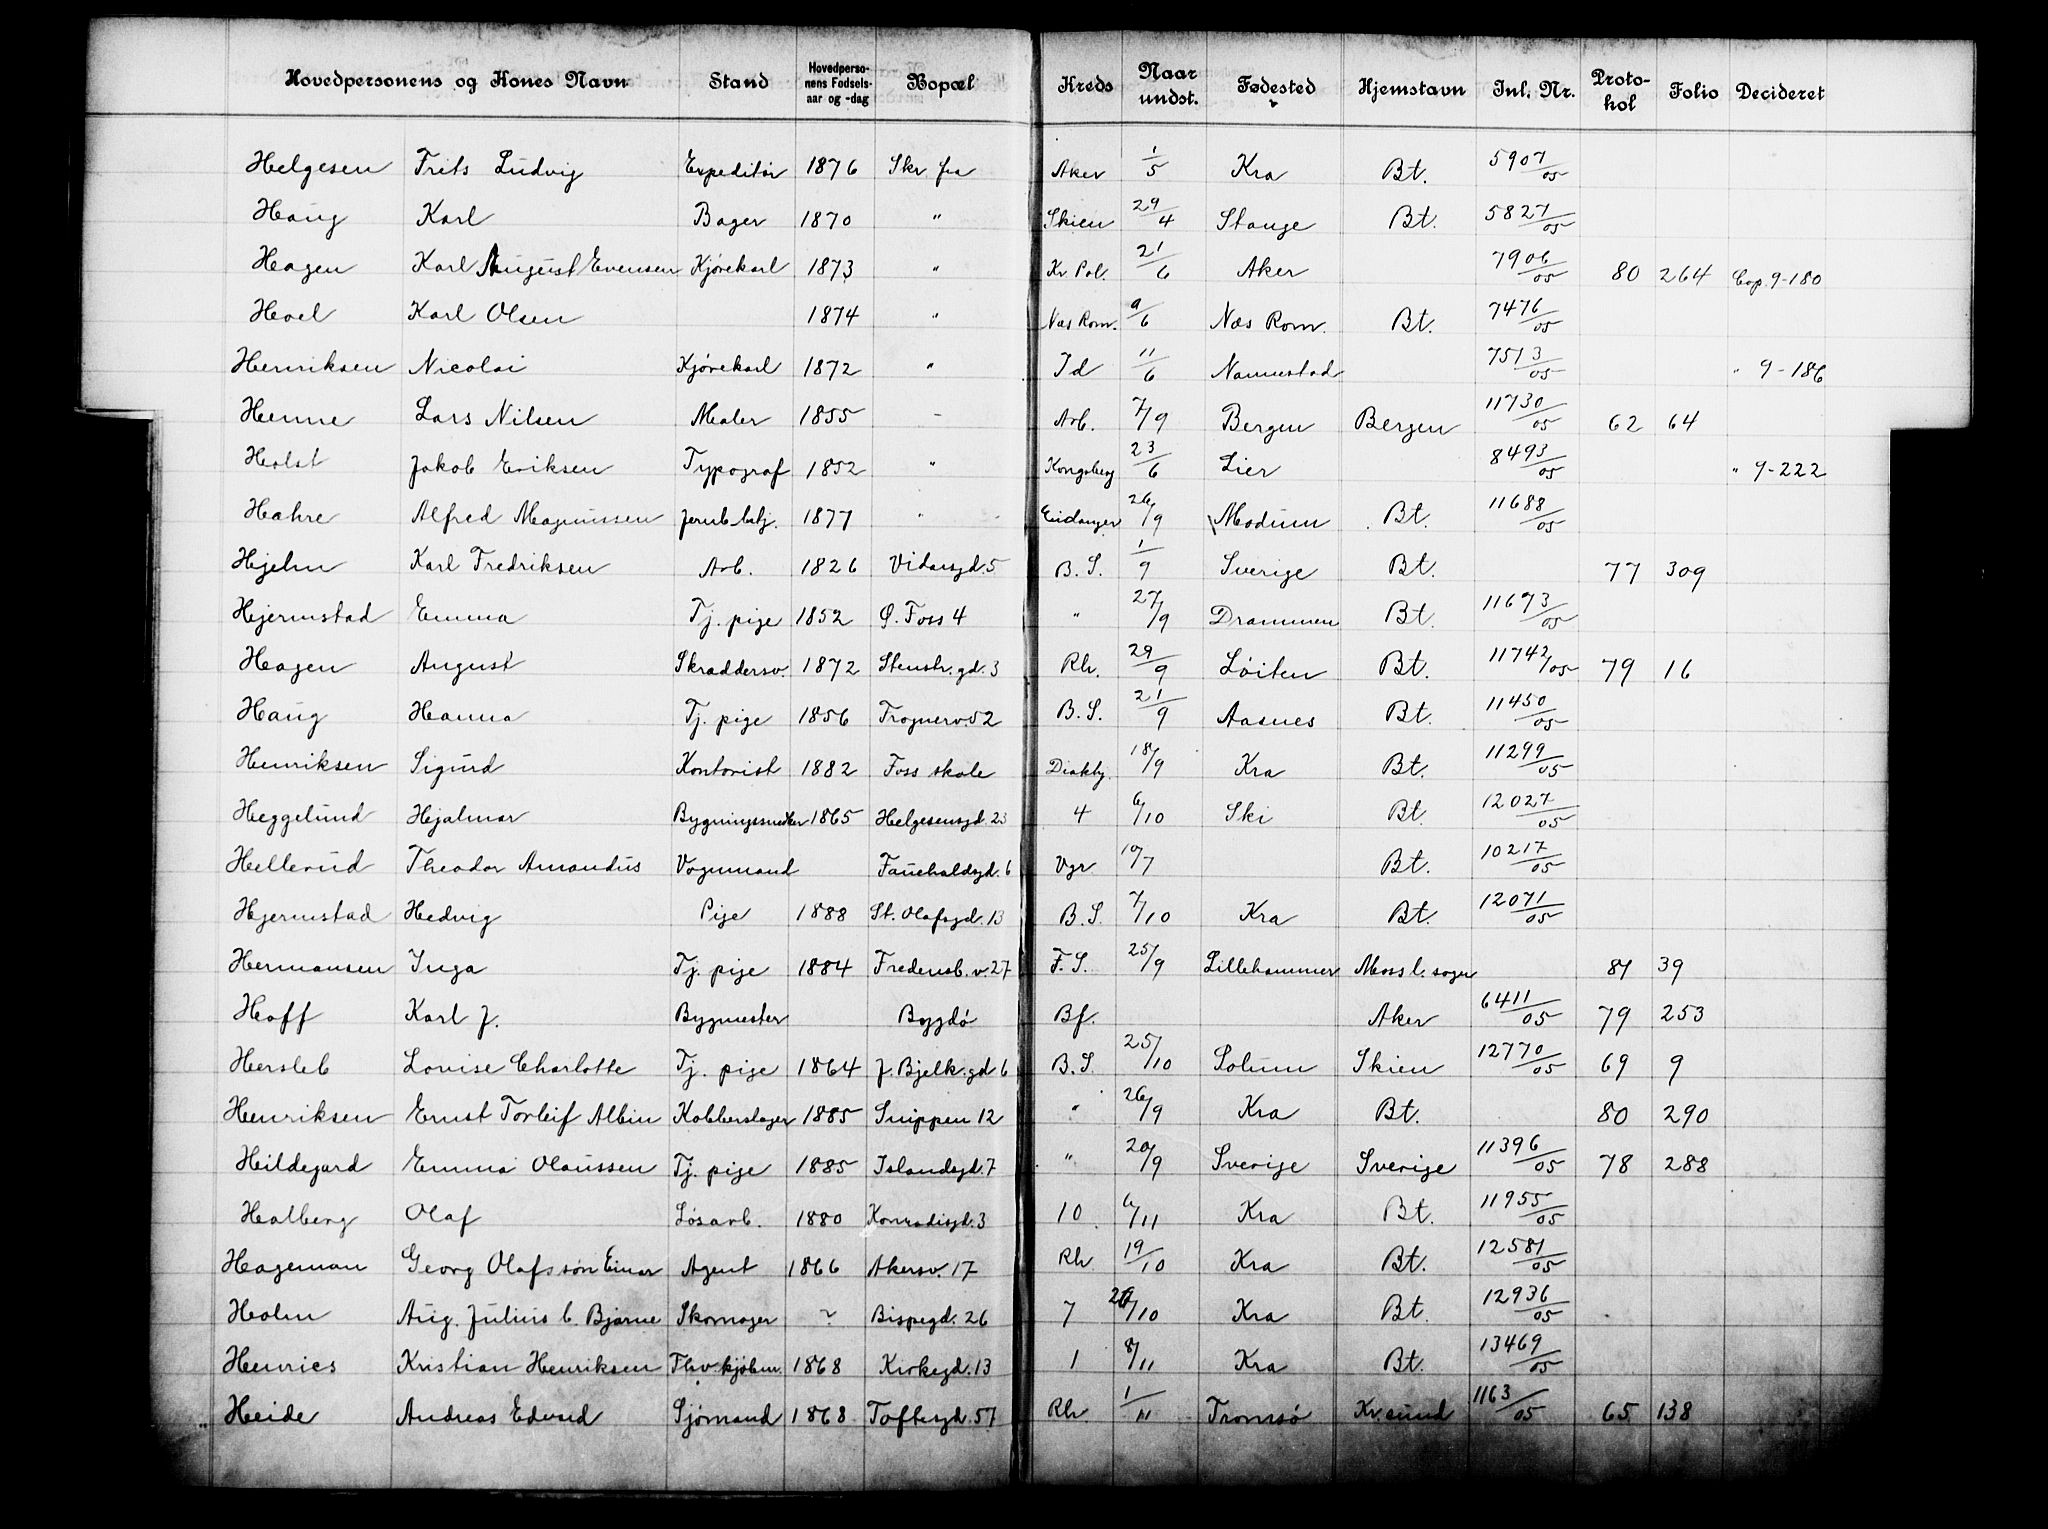 Hovedpersonens og Kones Navn Stand Hovedpersonens Fødselsaar og -dag Bopæl Kreds Naar undst. Fødested Hjemstavn Inl. Nr. Protokol Folio Decideret
Helgesen Frits Ludvig Expeditör 1876 Skr. fra Aker 1/5 Kra Bt. 5907/05
Haug Karl Bager 1870 " Skien 29/4 Stange Bt. 5827/05
Hagen Karl August Evensen Kjörekarl 1873 " Kr. Pol. 21/6 Aker 7906/05 80 264 Cop. 9-180
Hoel Karl Olsen 1874 " Næs Rom. 9/6 Næs Rom. Bt. 7476/05
Henriksen Nicolai Kjörekarl 1872 " Id 11/6 Nannestad 7513/05 " 9-186
Henne Lars Nilsen Maler 1855 - Arb. 7/9 Bergen Bergen 11730/05 62 64
Holst Jakob Eriksen Typograf 1852 " Kongsberg 23/6 Lier 8493/05 " 9-222
Hahre Alfred Magnussen Jernb.betj. 1877 " Eidanger 26/9 Modum Bt. 11688/05
Hjelm Karl Fredriksen Arb. 1826 Vidarsgd. 5 B. S. 1/9 Sverige Bt. 77 309
Hjermstad Emma Tj. pige 1852 Ø. Foss 4 " 27/9 Drammen Bt. 11673/05
Hagen August Skræddersv. 1872 Stenstr. gd. 3 Rh. 29/9 Löiten Bt. 11742/05 79 16
Haug Hanna Tj. pige 1856 Frognerv. 52 B. S. 21/9 Aasnes Bt. 11450/05
Henriksen Sigurd Kontorist 1882 Foss skole Diakhj. 18/9 Kra Bt. 11299/05
Heggelund Hjalmar Bygningssnedker 1865 Helgesensgd. 23 4 6/10 Ski Bt. 12027/05
Hellerud Theodor Amandus Vognmand Fauchaldsgd. 6 Vgr. 10/7 Bt. 10217/05
Hjermstad Hedvig Pige 1888 St. Olafsgd. 13 B. S. 7/10 Kra Bt. 12071/05
Hermansen Inga Tj. pige 1884 Fredensb. v. 27 F. S. 25/9 Lillehammer Moss l. sogn 81 39
Hoff Karl J. Bygmester Bygdö Bf. Aker 6411/05 79 253
Hersleb Lovise Charlotte Tj. pige 1864 J. Bjelk. gd 6 B. S. 25/10 Solum Skien 12770/05 69 9
Henriksen Ernst Torleif Albin Kobberslager 1885 Snippen 12 " 26/9 Kra Bt. 80 290
Hildegard Emma Olaussen Tj. pige 1885 Islandsgd. 7 " 20/9 Sverige Sverige 11396/05 78 288
Halberg Olaf Lösarb. 1880 Konradisgd. 3 10 6/11 Kra Bt. 11955/05
Hageman Georg Olafssön Einar Agent 1866 Akersv. 17 Rh. 19/10 Kra Bt. 12581/05
Holm Aug. Julius C. Bjarne Skomager ? Bispegd. 26 7 /10 Kra Bt. 12936/05
Henries Kristian Henriksen Fhv. kjöbm. 1868 Krokegd. 13 1 8/11 Kra Bt. 13469/05
Heide Andreas Edvard Sjömand 1868 Toftesgd. 57 Rh. 1/11 Tromsö Kr.sund 1163/05 65 138